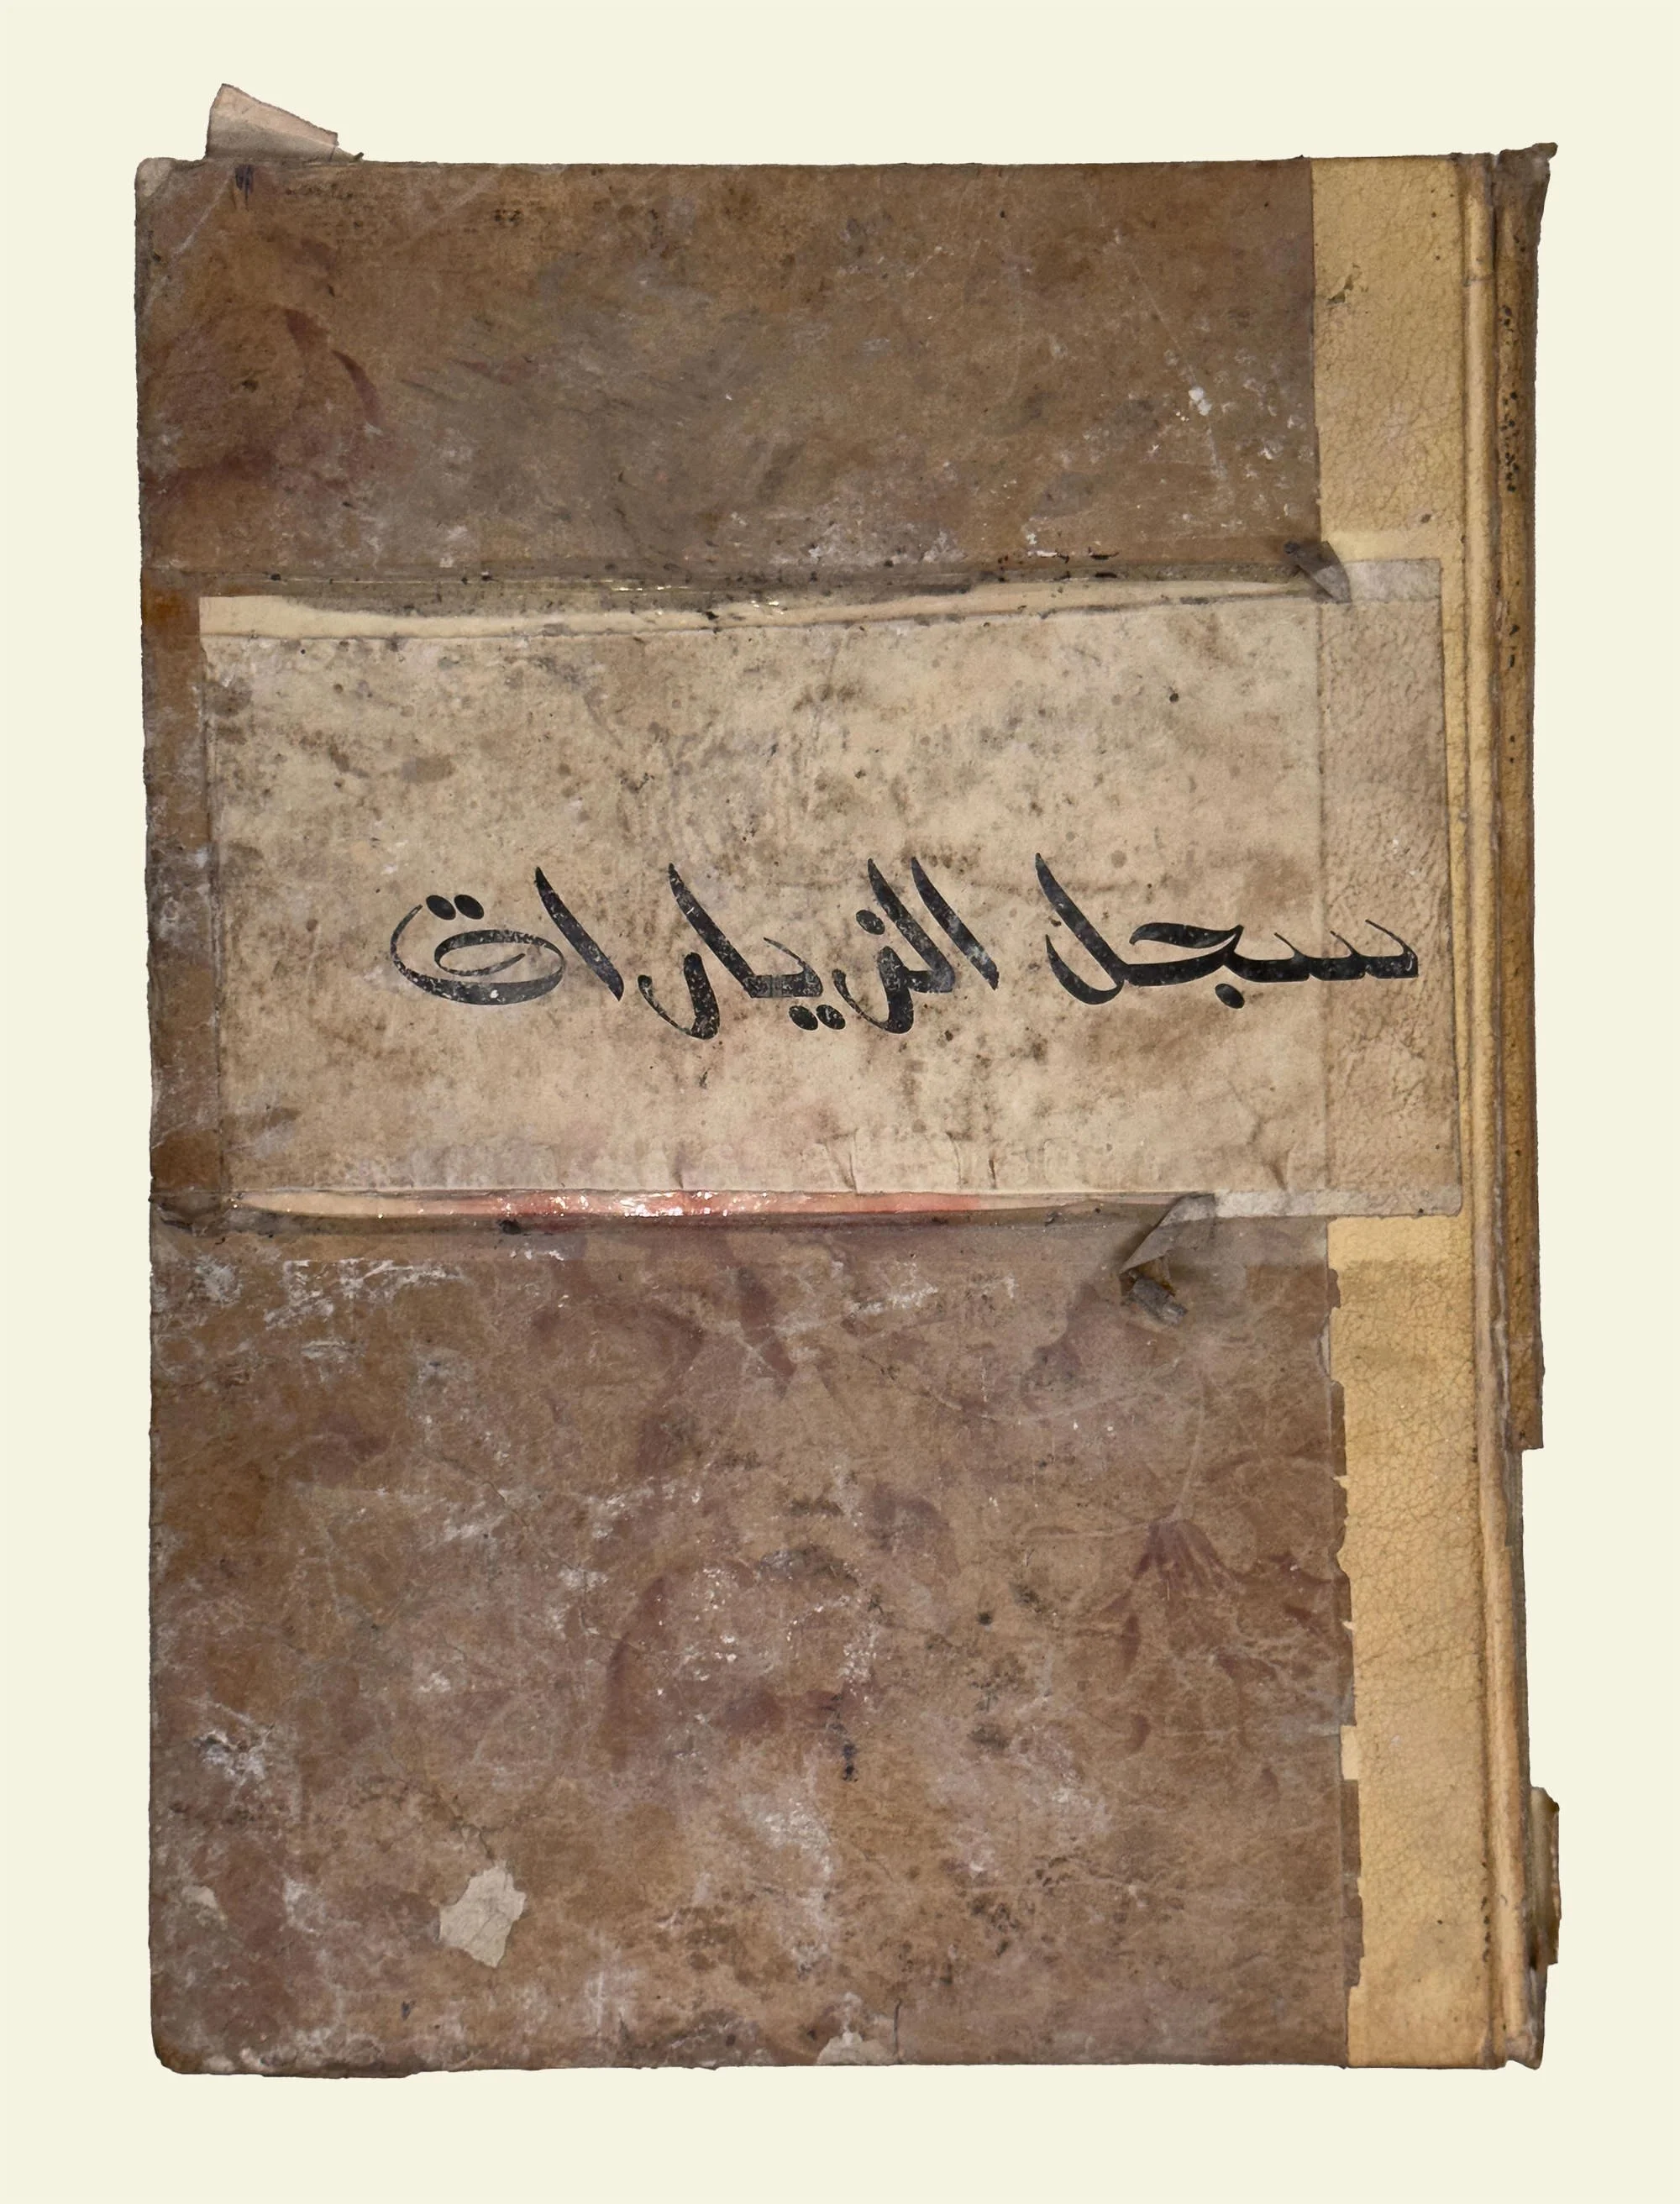 سجل الزيارات